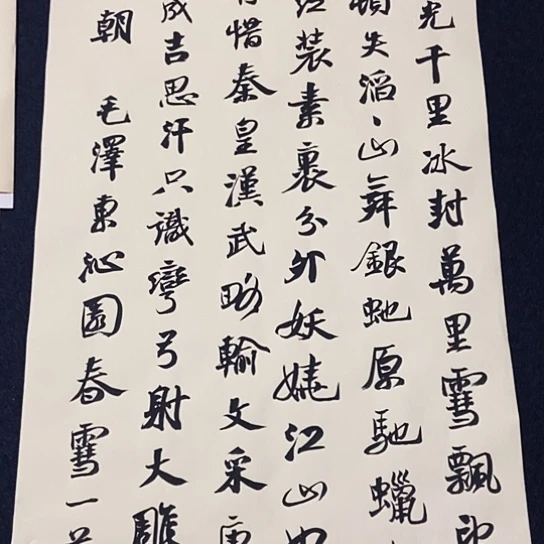 光千里冰封萬里雪飄
頓失滔、山舞銀虵原馳蠟
裝素裹分外妖嬈江山
惜秦皇漢武略輸文采
成吉思汗只識彎弓射大雕
朝 毛澤東沁園春雪一